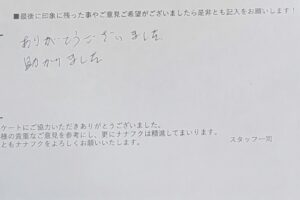 ■最後に印象に残った事やご意見ご希望がございましたら是非とも記入をお願いします！
ありがとうございました
助かりました
ケートにご協力いただきありがとうございました。
様の貴重なご意見を参考にし、更にナナフクは精進してまいります。
ともナナフクをよろしくお願いいたします。
スタッフ一同